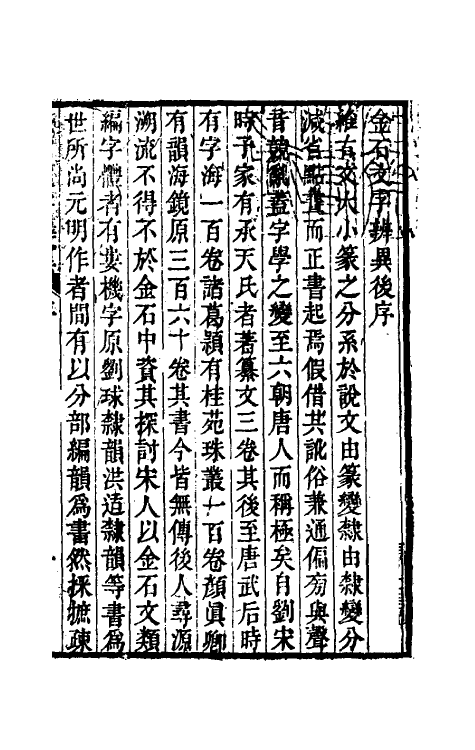 金石文字辨異後序
維古文大小篆之分系於說文由篆變隸由隸變分
減省點畫而正書起焉假借其訛俗兼通偏旁與聲
音競亂蓋字學之變至六朝唐人而稱極矣自劉宋
時予家有承天氏者著纂文三卷其後至唐武后時
有字海一百卷諸葛頴有桂苑珠叢一百卷顏眞卿
有韻海鏡原三百六十卷其書今皆無傳後人尋源
溯流不得不於金石中資其探討宋人以金石文類
編字體者有婁機字原劉球隸韻洪适隸韻等書爲
世所尚元明作者間有以分部編韻爲書然採摭疎